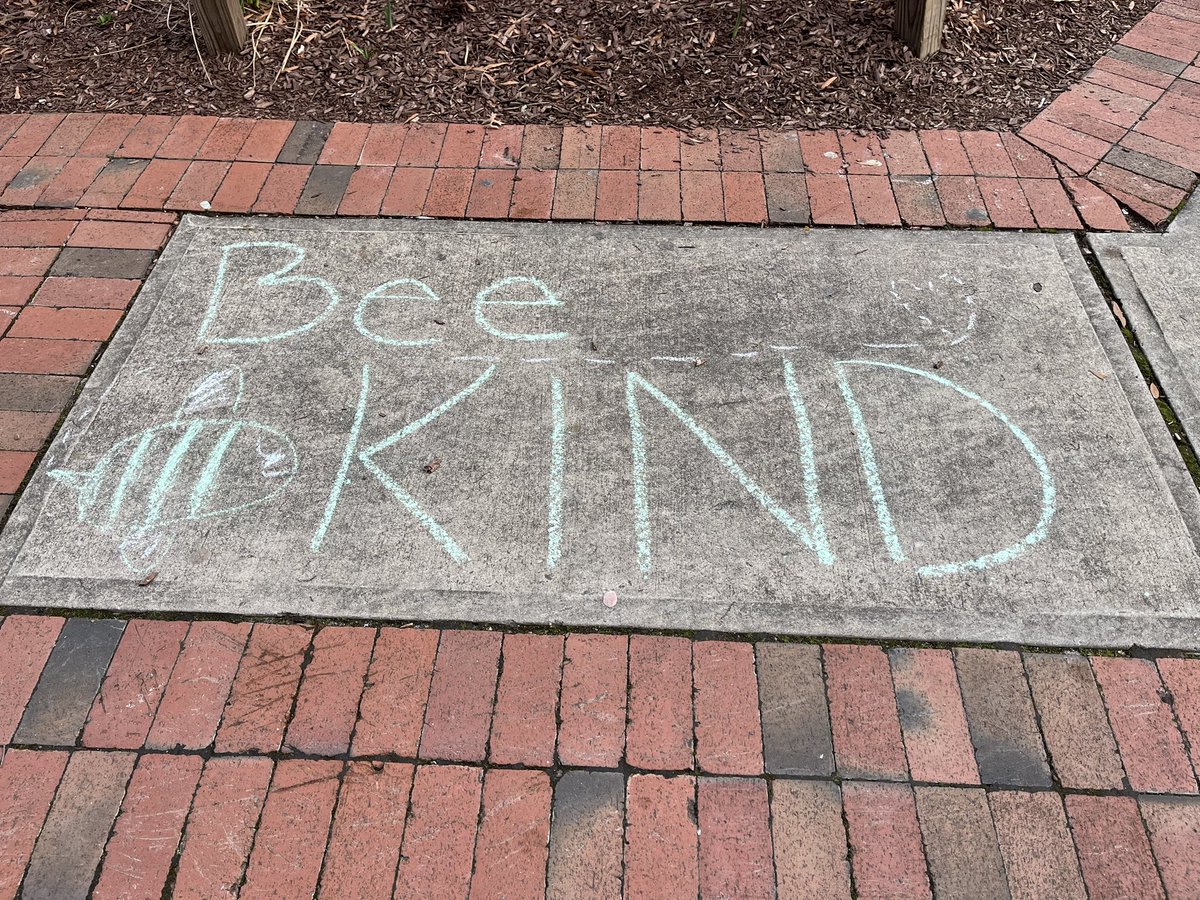 Bee
KIND